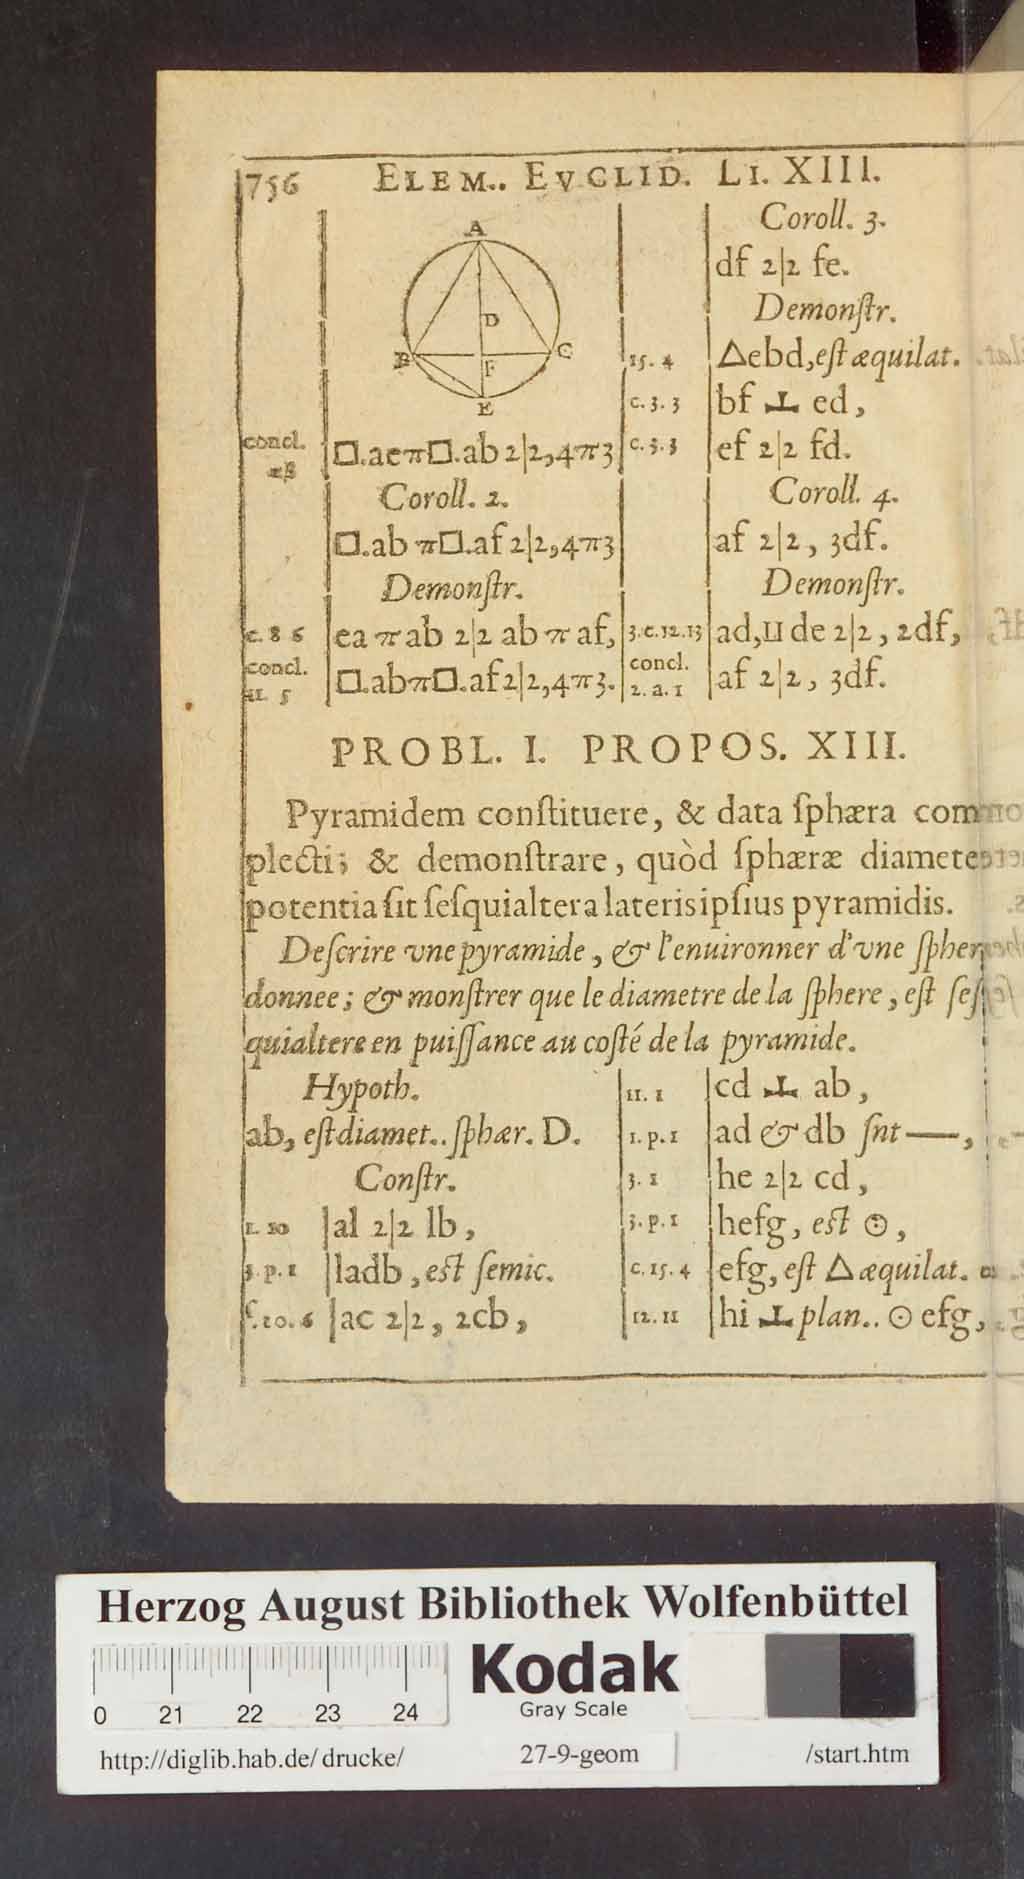 756 ELEM.. EVCLID. LI. XIII.
A
D
B C
F
E
concl.
αβ
□.aeπ□.ab 2|2,4π3
Coroll. 2.
□.ab π□.af 2|2,4π3
Demonſtr.
c. 8 6 ea π ab 2|2 ab π af,
concl. 11. 5 □.abπ□.af 2|2,4π3.
Coroll. 3.
df 2|2 fe.
Demonſtr.
15. 4 △ebd, eſt æquilat.
c. 3. 3 bf ⊥ ed,
c. 3. 3 ef 2|2 fd.
Coroll. 4.
af 2|2, 3df.
Demonſtr.
3.c.12.13 ad,⊔ de 2|2, 2df,
concl. 2. a. 1 af 2|2, 3df.
PROBL. I. PROPOS. XIII.
Pyramidem conſtituere, & data ſphæra com
plecti; & demonſtrare, quòd ſphæræ diamete
potentia ſit ſeſquialtera lateris ipſius pyramidis.
Deſcrire vne pyramide, & l'enuironner d'vne ſpher
donnee; & monſtrer que le diametre de la ſphere, eſt ſeſ
quialtere en puiſſance au coſté de la pyramide.
Hypoth.
ab, eſt diamet.. ſphær. D.
Conſtr.
1. 10 al 2|2 lb,
3. p. 1 ladb, eſt ſemic.
ſ. 10. 6 ac 2|2, 2cb,
11. 1 cd ⊥ ab,
1. p. 1 ad & db ſnt —,
3. 1 he 2|2 cd,
3. p. 1 hefg, eſt ⊙,
c. 15. 4 efg, eſt △ æquilat.
12. 11 hi ⊥ plan.. ⊙ efg,
Herzog August Bibliothek Wolfenbüttel
Kodak
Gray Scale
0 21 22 23 24
http://diglib.hab.de/drucke/ 27-9-geom /start.htm